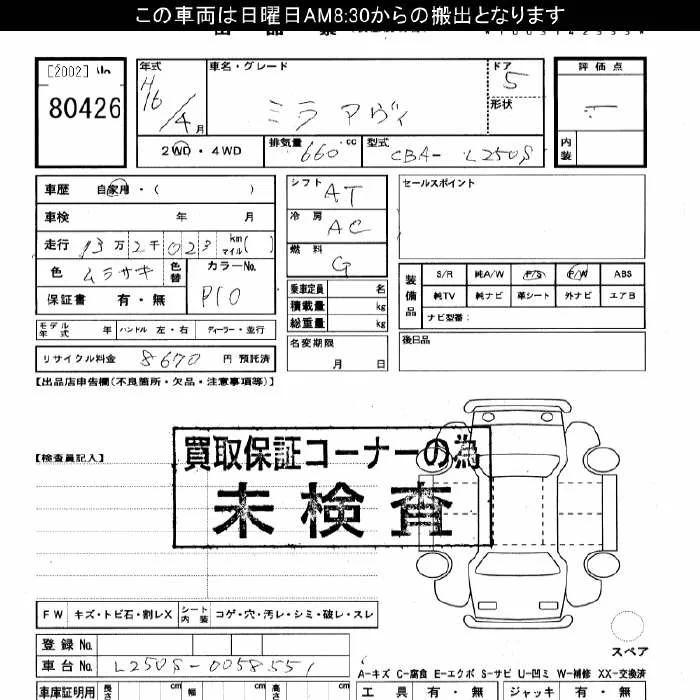 この車両は日曜日AM8:30からの搬出となります
[2002]
80426
年式
H16/4月
車名・グレード
ミラ アヴィ
ドア
5
形状
評価点
内装
2WD・4WD
排気量 660 cc
型式 CBA- L250S
車歴 自家用・( )
車検 年 月
走行 13万2千023 km マイル( )
色 ムラサキ 色替
カラーNo.
P10
保証書 有・無
シフト AT
冷房 AC
燃料 G
乗車定員 名
積載量 kg
総重量 kg
名変期限
月 日
セールスポイント
装備品
S/R 純A/W P/S P/W ABS
純TV 純ナビ 革シート 外ナビ エアB
ナビ型番:
後日品
モデル年式 年 ハンドル 左・右 ディーラー・並行
リサイクル料金 8670 円 預託済
【出品店申告欄(不良箇所・欠品・注意事項等)】
【検査員記入】
買取保証コーナーの為
未検査
FW キズ・トビ石・割レX シート内装 コゲ・穴・汚レ・シミ・破レ・スレ
スペア
登録 No.
車台 No. L250S-0058551
A-キズ C-腐食 E-エクボ S-サビ U-凹ミ W-補修 XX-交換済
車庫証明用 長さ cm 幅 cm 高さ cm
工具 有・無 ジャッキ 有・無